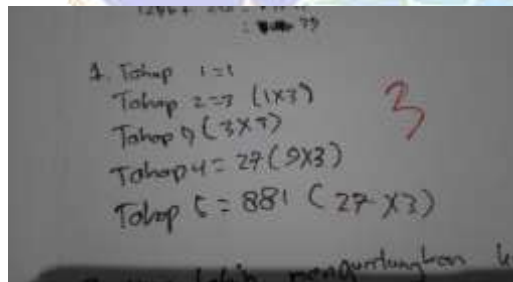 1. Tahap 1=1
Tahap 2=3 (1x3)
Tahap 9 (3x3)
Tahap 4=27 (9x3)
Tahap 5=881 (27x3)
3
lebih menguntungkan